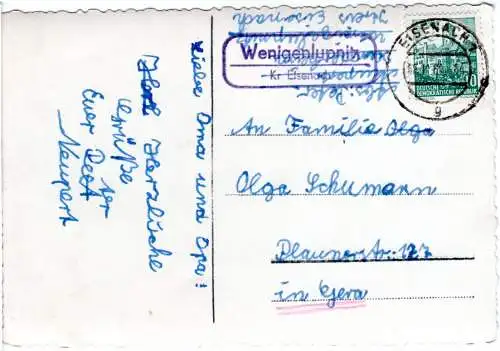 Liebe Oma und Opa!
Herzliche
Grüße
Euer Peter
Neupert
Kreis Eisenach
Abs: Peter
Wenigenlupnitz
Kr Eisenach
EISENACH 1
g
10
DEUTSCHE
DEMOKRATISCHE REPUBLIK
An Familie Olga
Olga Schumann
Plauenerstr. 177
in Gera